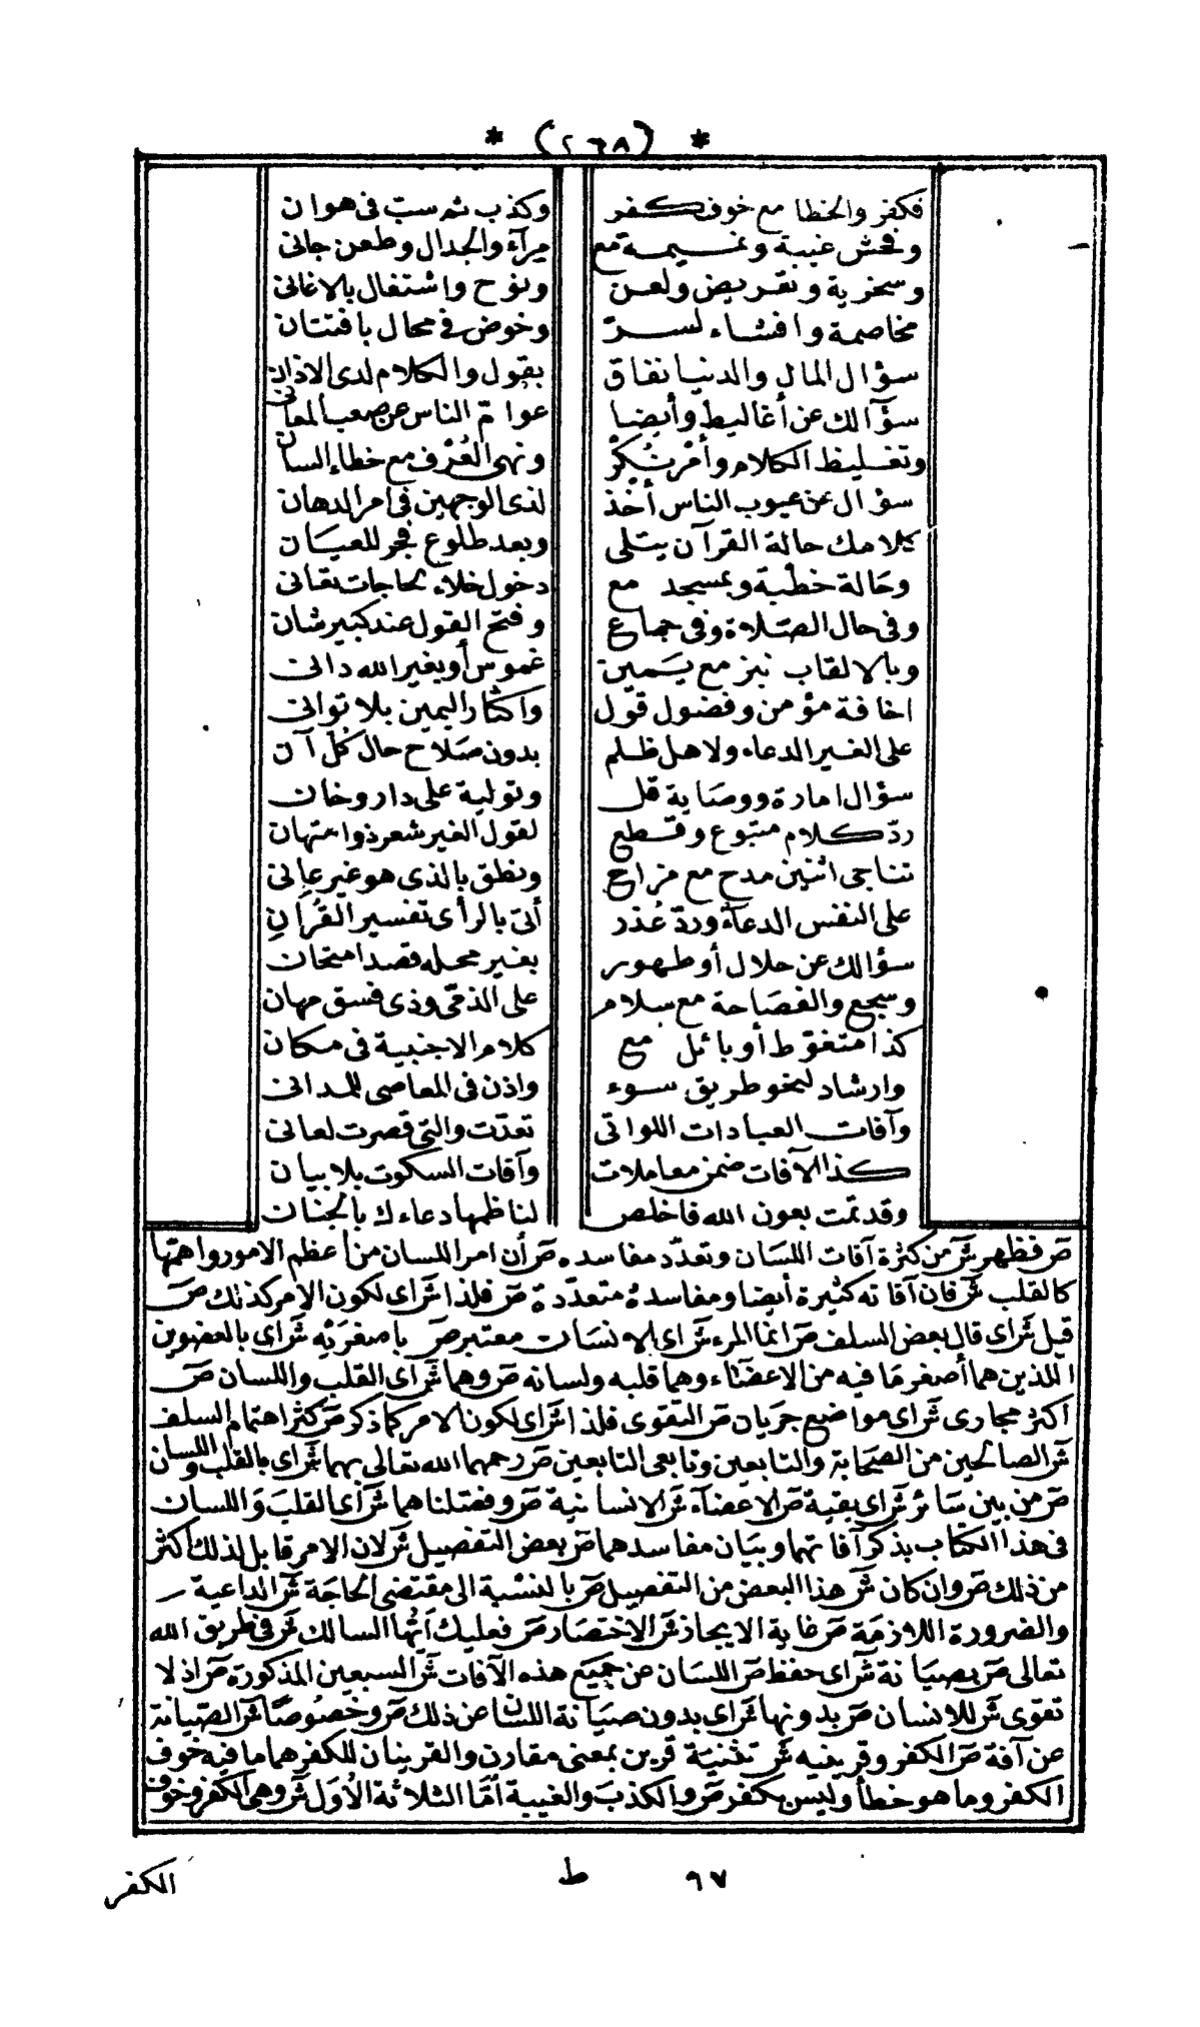 * (٢٦٨) *
فكفر والخطا مع خوف كفر وكذب ثم سب في هوان
وفحش غيبة ونميمة مع مرآء والجدال وطعن جاني
وسخرية وتعريض ولعن ونوح واشتغال بالاغاني
مخاصمة وافشاء لسر وخوض في محال بافتتان
سؤال المال والدنيا نفاق بقول والكلام لدى الاذان
سؤآلك عن أغاليط وأيضا عوامّ الناس عن صعب المعاني
وتغليظ الكلام وأمْر نُكْر ونهى العُرْف مع خطاء السان
سؤال عن عيوب الناس أخْذ لذى الوجهين في امر الدهان
كلامك حالة القرآن يتلى وبعد طلوع فجر للعيان
وحالة خطبة وبمسجد مع دخول خلاء لحاجات تعاني
وفى حال الصلاة وفى جماع وفتح القول عند كبير شان
وبالالقاب نبز مع يمين غموس أو بغير الله داني
اخافة مؤمن وفضول قول واكثار اليمين بلا تواني
على الغير الدعاء ولاهل ظلم بدون صلاح حال كل آن
سؤال امارة ووصاية قل وتولية على دار وخان
ردّ كلام متبوع وقطع لقول الغير شعر ذو امتهان
تناجى اثنين مدح مع مزاح ونطق بالذى هو غير عانى
على النفس الدعاء وردّ عُذر أتى بالرأى تفسير القُرانِ
سؤالك عن حلال أو طهور بغير محله قصد امتحان
وسجع والفصاحة مع سلام على الذمّى وذى فسق مهان
كذا متغوّط أو بائل مع كلام الاجنبية فى مكان
وارشاد لنحو طريق سوء واذن فى المعاصى للمدانى
وآفات العبادات اللواتى تعدّت والتى قصرت لعانى
كذا الآفات ضمن معاملات وآفات السكوت بلا بيان
وقد تمت بعون الله فاخلص لناظمها دعاءك بالجنان
ص فظهر ش من كثرة آفات اللسان وتعدّد مفاسده ص أن امر اللسان من أعظم الامور واهمّها
كالقلب ش فان آفاته كثيرة أيضا ومفاسده متعدّدة ص فلذا ش اى لكون الامر كذلك ص
قيل ش اى قال بعض السلف ص انما المرء ش اى الانسان معتبر ص باصغرَيْه ش اى بالعضوين
اللذين هما أصغر مَا فيه من الاعضَاء وهما قلبه ولسانه ص وهما ش اى القلب واللسان ص
اكثر مجارى ش اى مواضع جريان ص التقوى فلذا ش اى لكون الامر كما ذكر ص كثر اهتمام السلف
ش الصالحين من الصحابة والتابعين وتابعى التابعين ص رحمهم الله تعالى بهما ش اى بالقلب واللسان
ص من بين سَائر ش اى بقية ص الاعضآء ش الانسانية ص وفصّلناهما ش اى القلبَ وَاللسان
فى هذا الكتاب بذكر آفاتهما وبيان مفاسدهما ص بعض التفصيل ش لان الامر قابل لذلك اكثر
من ذلك ص وان كان ش هذا البعض من التفصيل ص بالنسْبة الى مقتضى الحاجَة ش الداعية
والضرورة اللازمَة ص غاية الايجاز ش الاختصار ص فعليك أيّها السالك ش فى طريق الله
تعالى ص بصيَانة ش اى حفظ ص اللسَان عن جميع هذه الآفات ش السبعين المذكورة ص اذ لا
تقوى ش للانسان ص بدونها ش اى بدون صيَانة اللسان عن ذلك ص وخصُوصًا ش الصّيانة
عن آفة ص الكفر وقرينيه ش تثنيَة قرين بمعنى مقارن والقرينان للكفر هما ما فيه خوف
الكفر وما هو خطأ وليس بكفر ص والكذبَ والغيبة أمّا الثلاثة الأوَل ش وهى الكفر وخوف
٩٧ ط الكفر